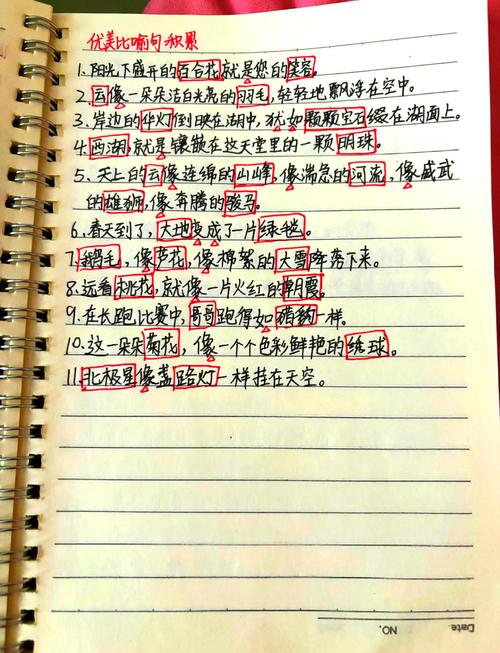 优美比喻句积累
1.阳光下盛开的百合花就是您的笑容。
2.云像一朵朵洁白光亮的羽毛，轻轻地飘浮在空中。
3.岸边的华灯倒映在湖中，犹如颗颗宝石缀在湖面上。
4.西湖，就是镶嵌在这天堂里的一颗明珠。
5.天上的云像连绵的山峰，像湍急的河流，像威武
的雄狮，像奔腾的骏马。
6.春天到了，大地变成了一片绿毯。
7.鹅毛，像芦花，像棉絮的大雪降落下来。
8.远看桃花，就像一片火红的朝霞。
9.在长跑比赛中，哥哥跑得如猎豹一样。
10.这一朵朵菊花，像一个个色彩鲜艳的绣球。
11.北极星像盏路灯一样挂在天空。
Date
NO.